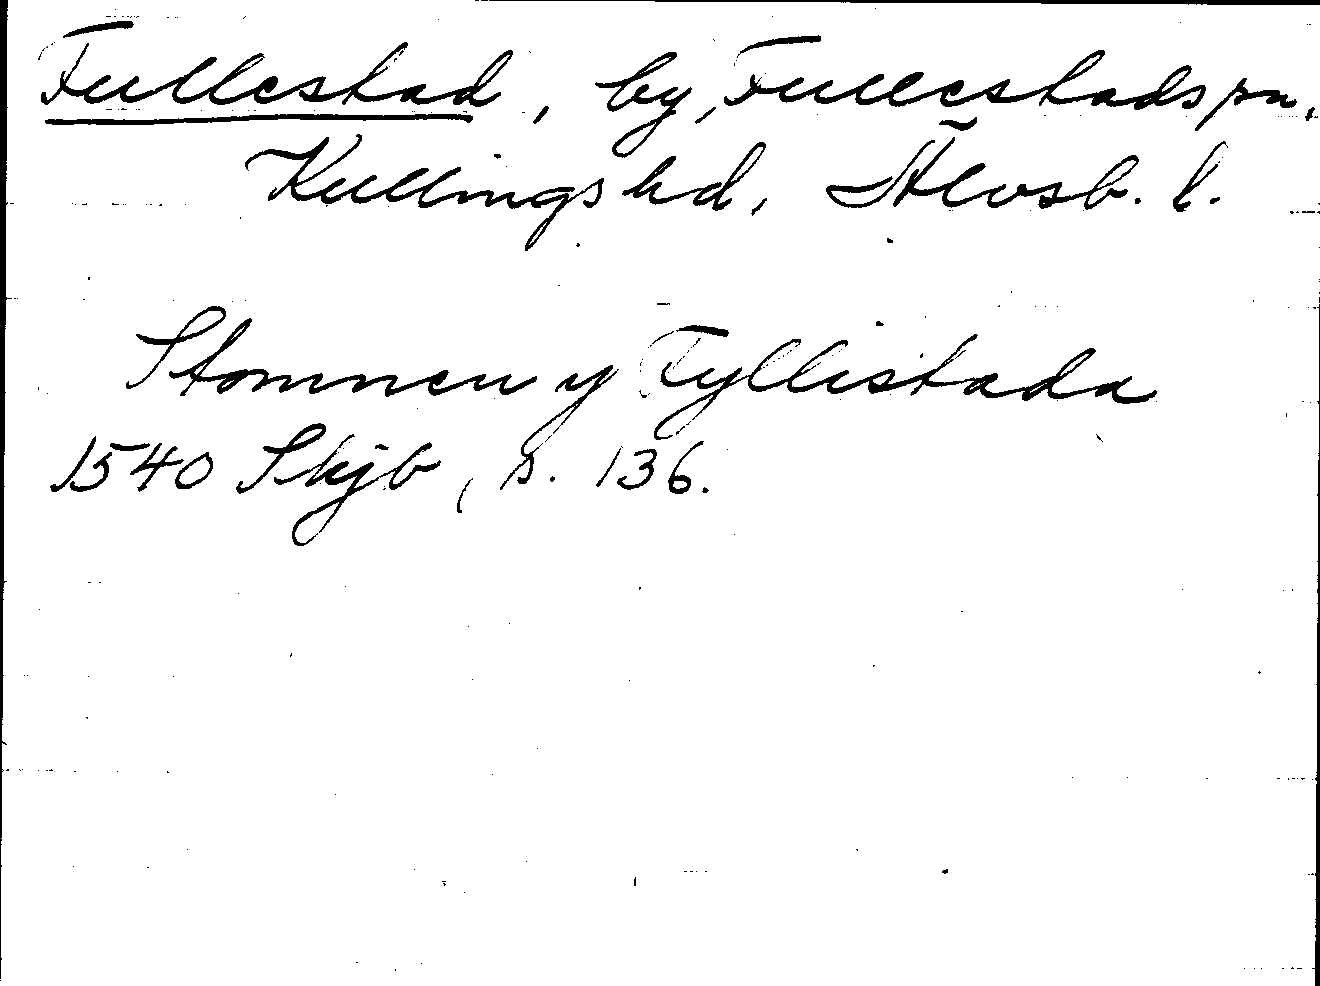 Fullestad, by, Fullestads sn,
Kullings hd, Älvsb. l.
Stomnen y Fyllistada
1540 Skjb, s. 136.